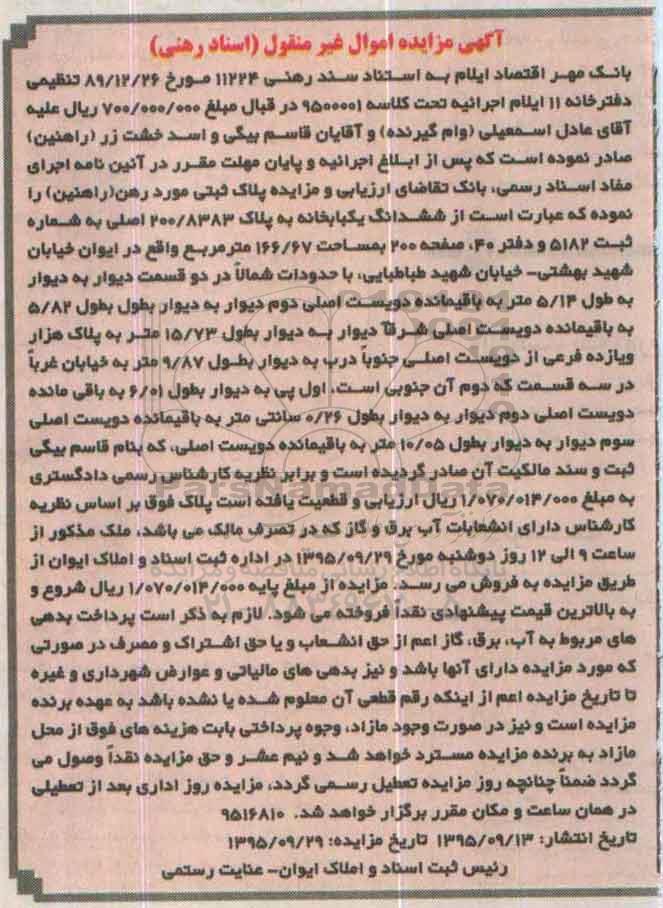 آگهی مزایده اموال غیر منقول (اسناد رهنی)
بانک مهر اقتصاد ایلام به استناد سند رهنی ۱۱۲۲۴ مورخ ۸۹/۱۲/۲۶ تنظیمی
دفترخانه ۱۱ ایلام اجرائیه تحت کلاسه ۹۵۰۰۰۰۱ در قبال مبلغ ۷۰۰/۰۰۰/۰۰۰ ریال علیه
آقای عادل اسمعیلی (وام گیرنده) و آقایان قاسم بیگی و اسد خشت زر (راهنین)
صادر نموده است که پس از ابلاغ اجرائیه و پایان مهلت مقرر در آئین نامه اجرای
مفاد اسناد رسمی، بانک تقاضای ارزیابی و مزایده پلاک ثبتی مورد رهن(راهنین) را
نموده که عبارت است از ششدانگ یکبابخانه به پلاک ۲۰۰/۸۳۸۳ اصلی به شماره
ثبت ۵۱۸۲ و دفتر ۴۰، صفحه ۲۰۰ بمساحت ۱۶۶/۶۷ مترمربع واقع در ایوان خیابان
شهید بهشتی- خیابان شهید طباطبایی، با حدودات شمالاً در دو قسمت دیوار به دیوار
به طول ۵/۱۴ متر به باقیمانده دویست اصلی دوم دیوار به دیوار بطول بطول ۵/۸۲
به باقیمانده دویست اصلی شرقاً دیوار به دیوار بطول ۱۵/۷۳ متر به پلاک هزار
ویازده فرعی از دویست اصلی جنوباً درب به دیوار بطول ۹/۸۷ متر به خیابان غرباً
در سه قسمت که دوم آن جنوبی است، اول پی به دیوار بطول ۶/۰۱ به باقی مانده
دویست اصلی دوم دیوار به دیوار بطول ۰/۲۶ سانتی متر به باقیمانده دویست اصلی
سوم دیوار به دیوار بطول ۱۰/۰۵ متر به باقیمانده دویست اصلی، که بنام قاسم بیگی
ثبت و سند مالکیت آن صادر گردیده است و برابر نظریه کارشناس رسمی دادگستری
به مبلغ ۱/۰۷۰/۰۱۴/۰۰۰ ریال ارزیابی و قطعیت یافته است پلاک فوق بر اساس نظریه
کارشناس دارای انشعابات آب برق و گاز که در تصرف مالک می باشد، ملک مذکور از
ساعت ۹ الی ۱۲ روز دوشنبه مورخ ۱۳۹۵/۰۹/۲۹ در اداره ثبت اسناد و املاک ایوان از
طریق مزایده به فروش می رسد. مزایده از مبلغ پایه ۱/۰۷۰/۰۱۴/۰۰۰ ریال شروع و
به بالاترین قیمت پیشنهادی نقداً فروخته می شود. لازم به ذکر است پرداخت بدهی
های مربوط به آب، برق، گاز اعم از حق انشعاب و یا حق اشتراک و مصرف در صورتی
که مورد مزایده دارای آنها باشد و نیز بدهی های مالیاتی و عوارض شهرداری و غیره
تا تاریخ مزایده اعم از اینکه رقم قطعی آن معلوم شده یا نشده باشد به عهده برنده
مزایده است و نیز در صورت وجود مازاد، وجوه پرداختی بابت هزینه های فوق از محل
مازاد به برنده مزایده مسترد خواهد شد و نیم عشر و حق مزایده نقداً وصول می
گردد ضمناً چنانچه روز مزایده تعطیل رسمی گردد، مزایده روز اداری بعد از تعطیلی
در همان ساعت و مکان مقرر برگزار خواهد شد. ۹۵۱۶۸۱۰
تاریخ انتشار: ۱۳۹۵/۰۹/۱۳ تاریخ مزایده: ۱۳۹۵/۰۹/۲۹
رئیس ثبت اسناد و املاک ایوان- عنایت رستمی
ParsNamadData